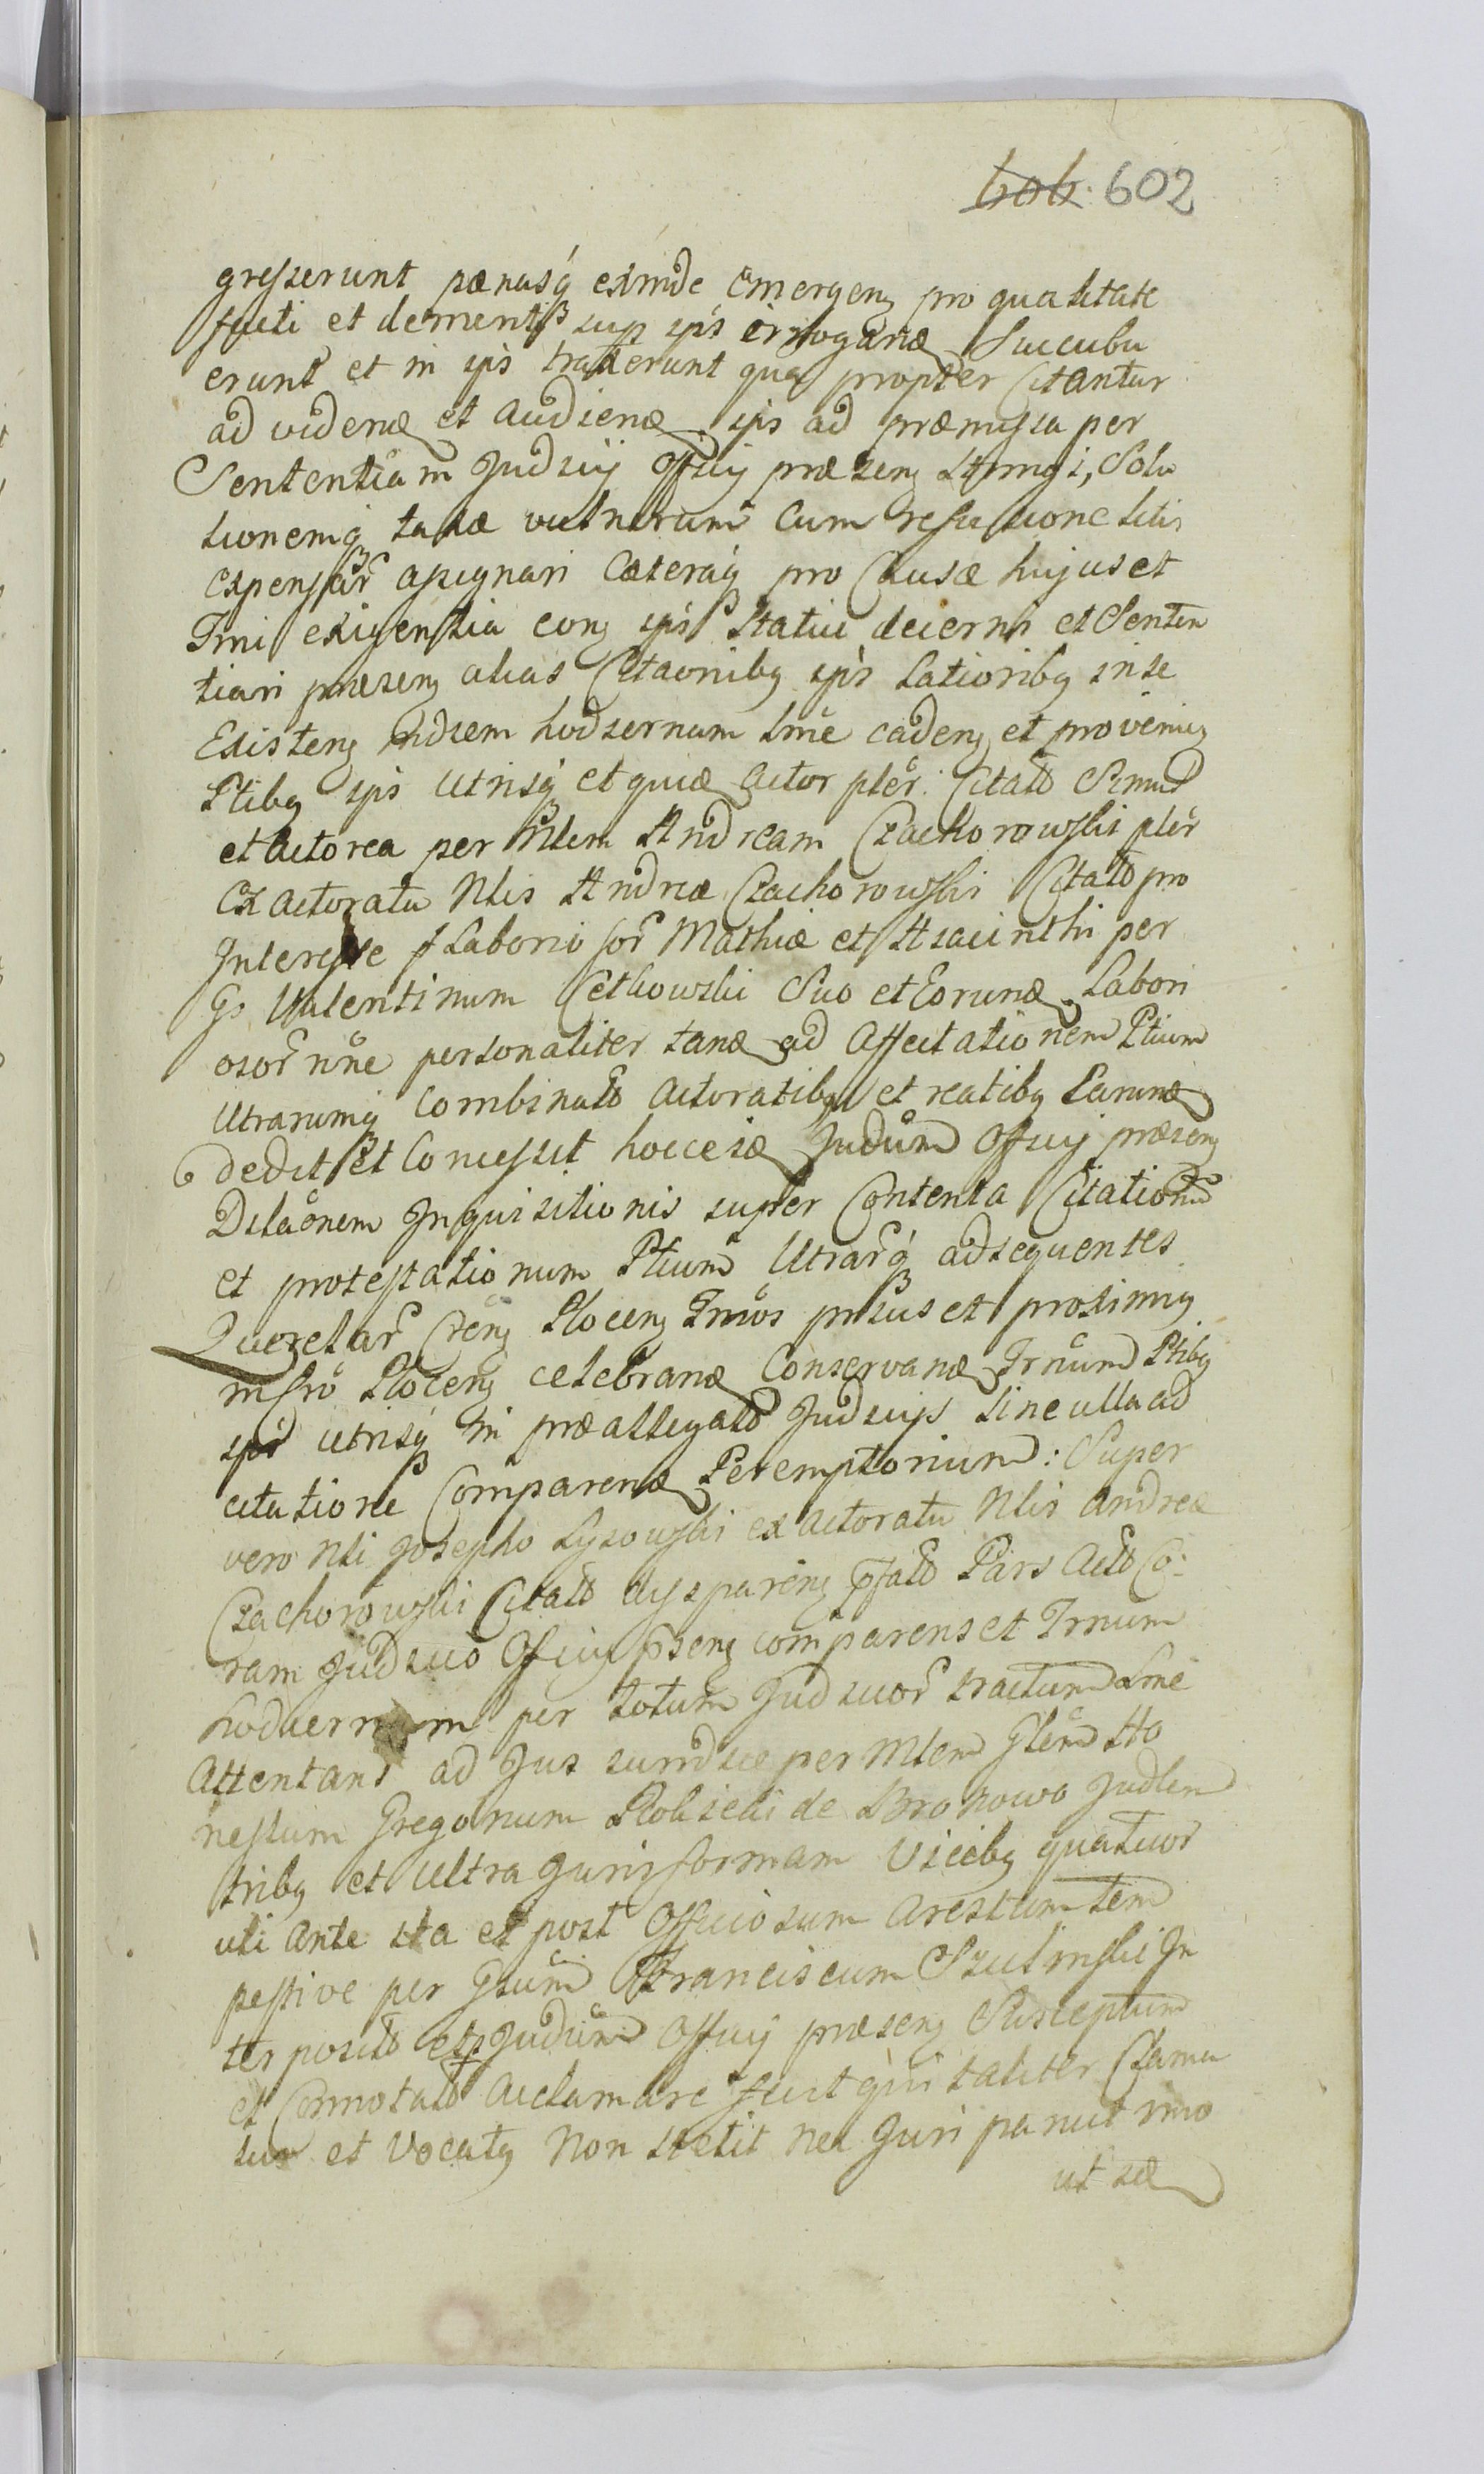 606. 602
gresserunt pænasq́ exinde emergen pro qualitate
facti et dementis sup ipś irrogand Succubu
erunt et in ipś traxerunt qua propter Citantur
ad videnď et Audienď ipś ad præmissa per
Sententiam Judicij Officij præsen stringi, Solu
tionemq́ taxæ vulnerum Cum refusione litis
Expensar assignari Cæteraq́ pro Causæ hujus et
Trni exigentia con ipś statui decerni et Senten
tiari præsen alias Citaonibq ipś Latioribq in se
Existen indiem hodiernam Lme caden et provenien
Ptibq ipś Utrisq́ et quid Actor pter. Citato Simul
et Actorea per Nlem Andream Czachorowski pter
Ex Actoratu Nlis Andreæ Czachorowski Citato pro
Interesse Laborio sor Mathiæ et Hyacinthi per
Gs Valentinum Cetkowski Suo et Eorund Labori
osor nne personaliter tand ad Affectationem Ptium
Utrarumq́ Combinato Actoratibq et reatibq Earund
dedit et Concessit hocce id Judům Officij præsen
Dilaōnem Inquisitionis super Contenta Citationū
et protestationum Ptium Utrarq́ ad sequentes
Querelar Cren Plocen Trnos prius et proximiq
in fro Plocen celebrand Conservand Trnum Ptibq
ipś utrisq́ in præallegato Judicijs sine ulla ad
citatione Comparend Peremptorium: Super
vero Nli Josepho Lysowski ex Actoratu Nlis Andreæ
Czachorowski Citato dysparen pfato Pars Acto Co:
ram Judicio Officij psen comparens et Trnum
hodiernum per totum Judicior tractum Lme
Attentans ad Jus sumdiee per Mlem Glem Ho
nestum Gregorium Rokicki de Bronowo Judlem
tribq et ultra Juris formam Vicibq quatuor
uti Ante ita et post Officiosum Arestum tem
pestive per Gsum Franciscum Szulinski In
ter posito et Judům Officij præsen Susceptum
et Connotato Acclamare fecit qui taliter Clama
tus et Vocatq Non stetit nec Juri paruit imo
ut sæ